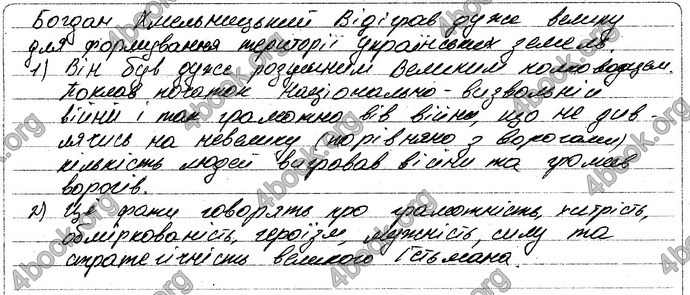 Богдан Хмельницький Відіграв дуже велику
для формування території українських земель.
1) Він був дуже розумним Великим полководцем.
Поклав початок Національно-визвольній
війні і так грамотно вів війни, що не див-
лячись на невелику (порівняно з ворогами)
кількість людей вигравав війни та громив
ворогів.
2) Ці факти говорять про грамотність, хитрість,
обміркованість, героїзм, мужність, силу та
стратегічність великого Гетьмана.
4book.org